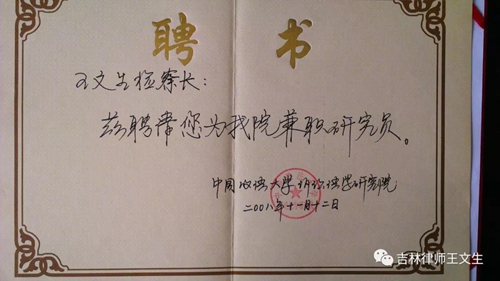 聘书
王文生检察长：
兹聘请您为我院兼职研究员。
中国政法大学诉讼法学研究院
二〇〇八年十一月十二日
吉林律师王文生